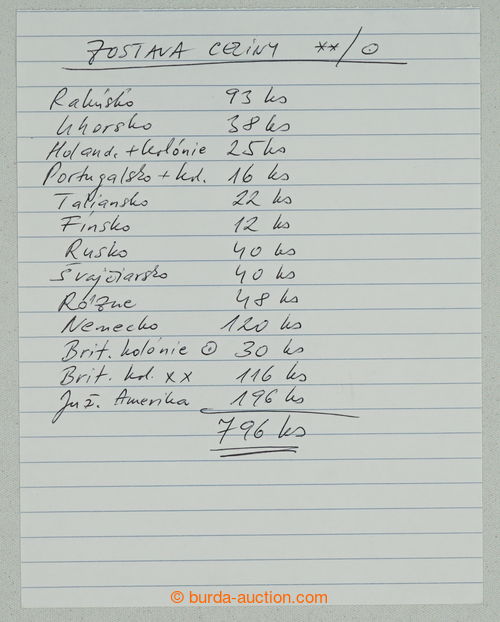 ZOSTAVA CELINY **/⊙
Rakúsko 93 ks
Uhorsko 38 ks
Holand. + kolónie 25 ks
Portugalsko + kol. 16 ks
Taliansko 22 ks
Fínsko 12 ks
Rusko 40 ks
Švajčiarsko 40 ks
Rôzne 48 ks
Nemecko 120 ks
Brit. kolónie ⊙ 30 ks
Brit. kol. xx 116 ks
Juž. Amerika 196 ks
796 ks
© burda-auction.com